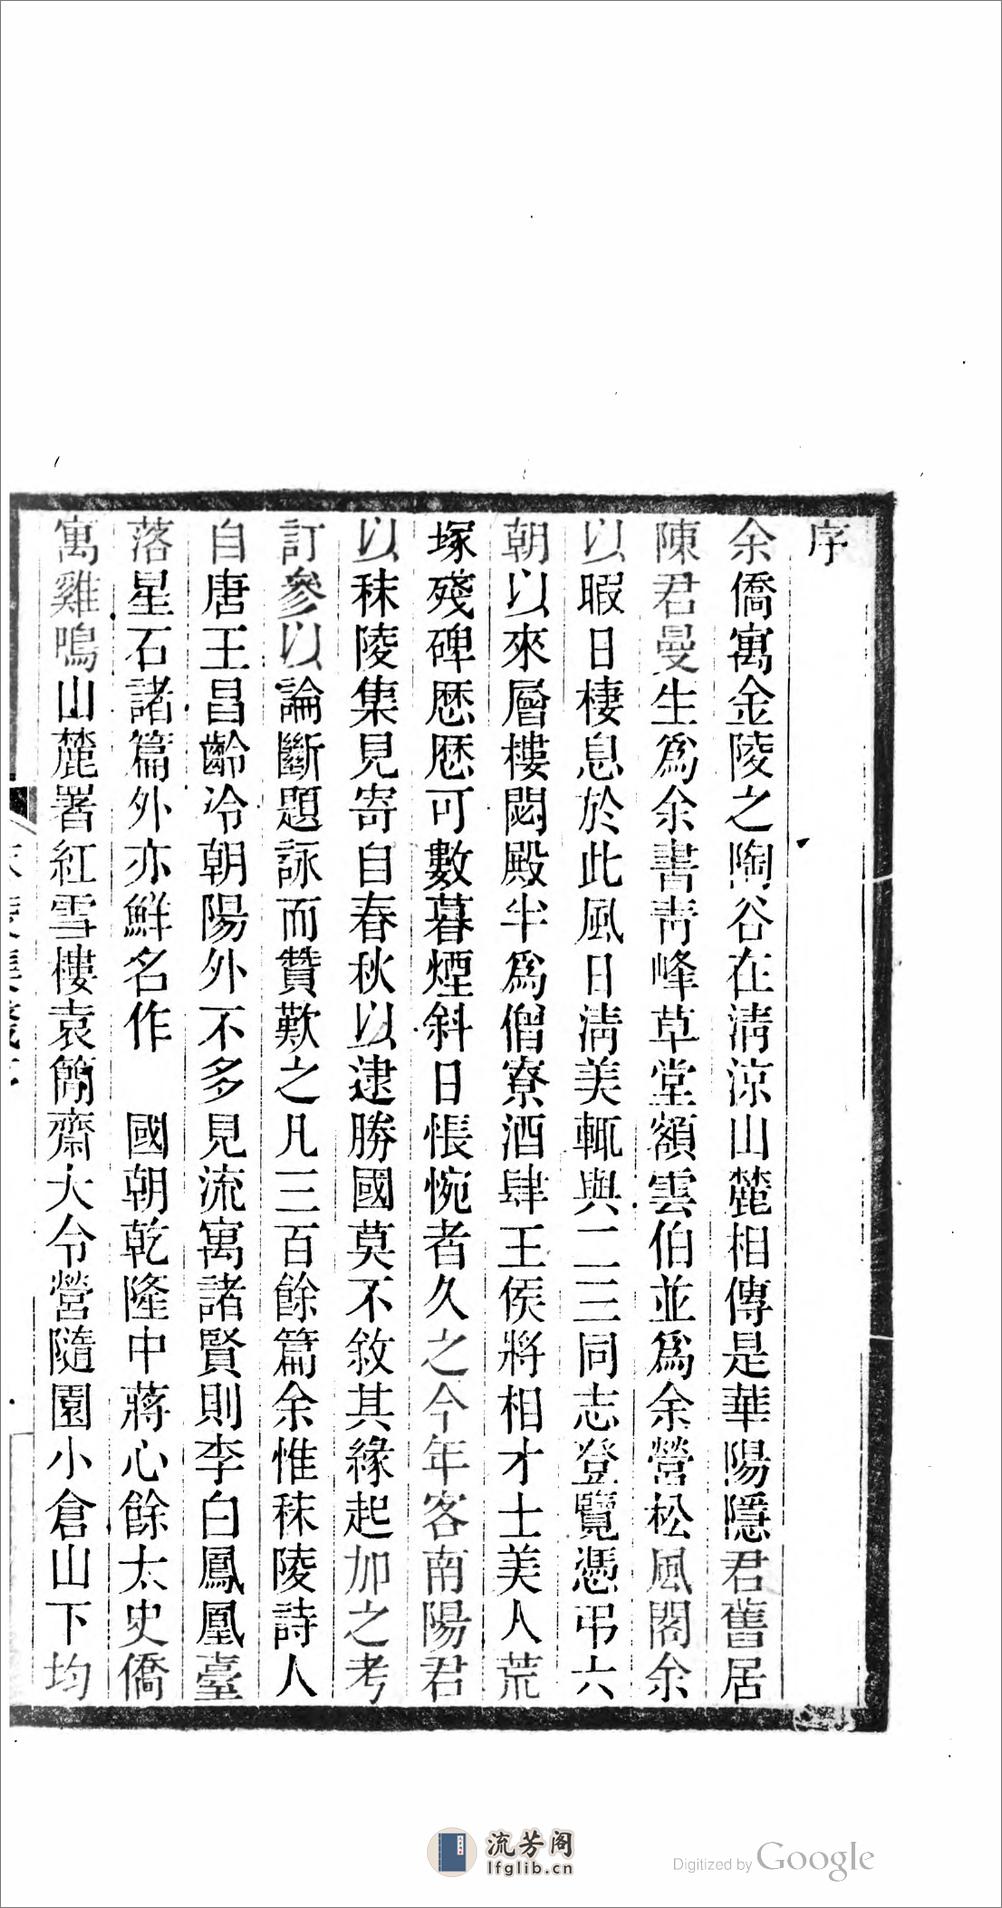 序
余僑寓金陵之陶谷在淸涼山麓相傳是華陽隱君舊居
陳君曼生爲余書靑峰草堂額雲伯並爲余營松風閣余
以暇日棲息於此風日淸美輒與二三同志登覽憑弔六
朝以來層樓閟殿半爲僧寮酒肆王侯將相才士美人荒
塚殘碑歷歷可數暮煙斜日悵惋者久之今年客南陽君
以秣陵集見寄自春秋以逮勝國莫不敘其緣起加之考
訂參以論斷題詠而贊歎之凡三百餘篇余惟秣陵詩人
自唐王昌齡冷朝陽外不多見流寓諸賢則李白鳳凰臺
落星石諸篇外亦鮮名作　國朝乾隆中蔣心餘太史僑
寓雞鳴山麓署紅雪樓袁簡齋大令營隨園小倉山下均
流芳阁
lfglib.cn
Digitized by Google